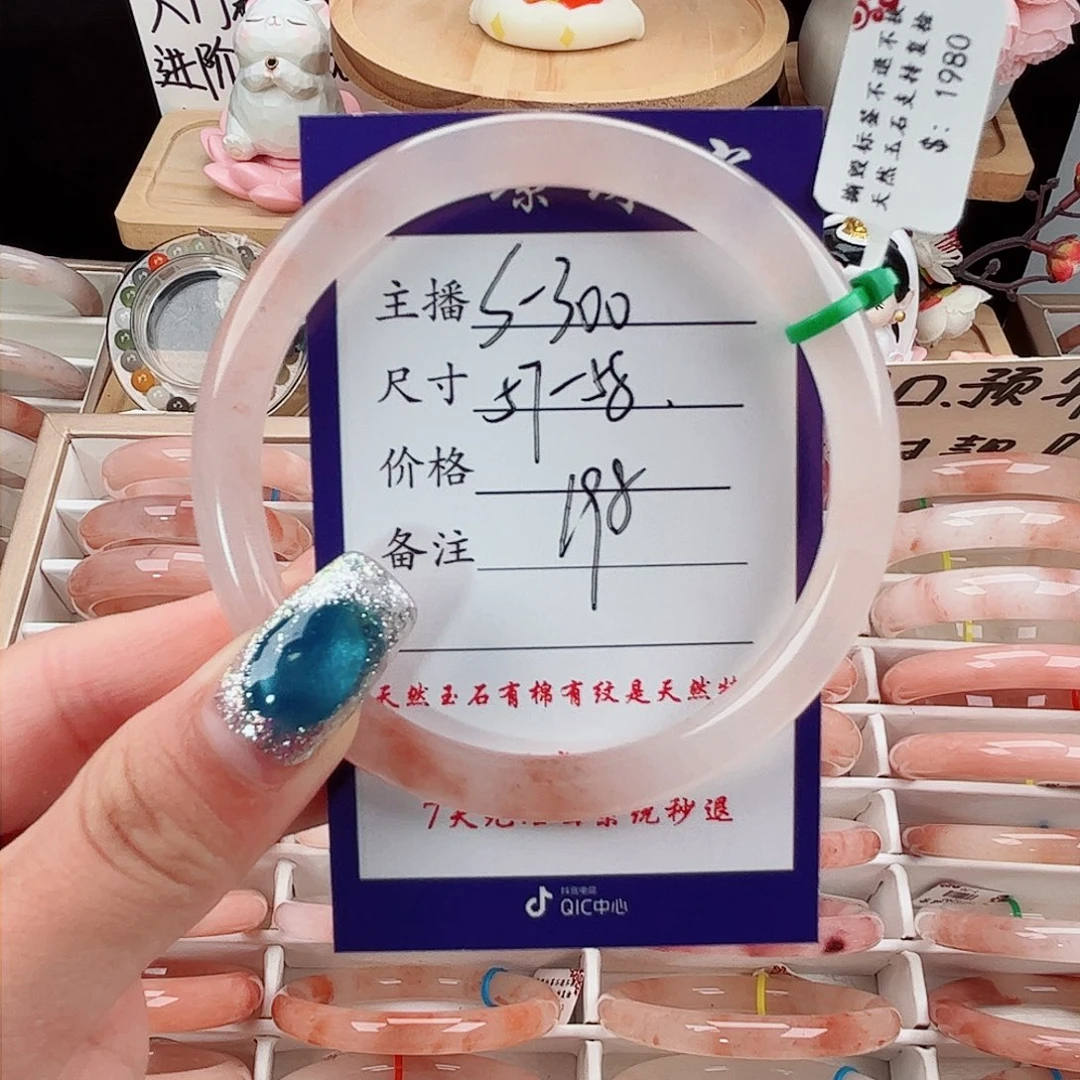 进阶
撕毁标签不退不换
天然玉石支持复检
$: 1980
主播 S-300
尺寸 57-58.
价格 198
备注
天然玉石有棉有纹是天然
7天无 秒退
抖音电商
QIC中心
预